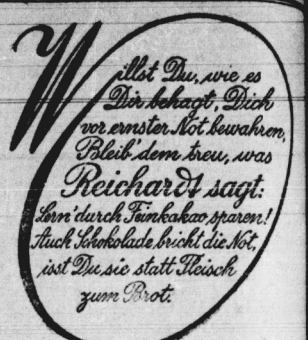 Willst Du, wie es
Dir behagt, Dich
vor ernster Not bewahren,
Bleib' dem treu, was
Reichardt sagt:
Lern' durch Feinkakao sparen!
Auch Schokolade bricht die Not,
isst Du sie statt Fleisch
zum Brot.